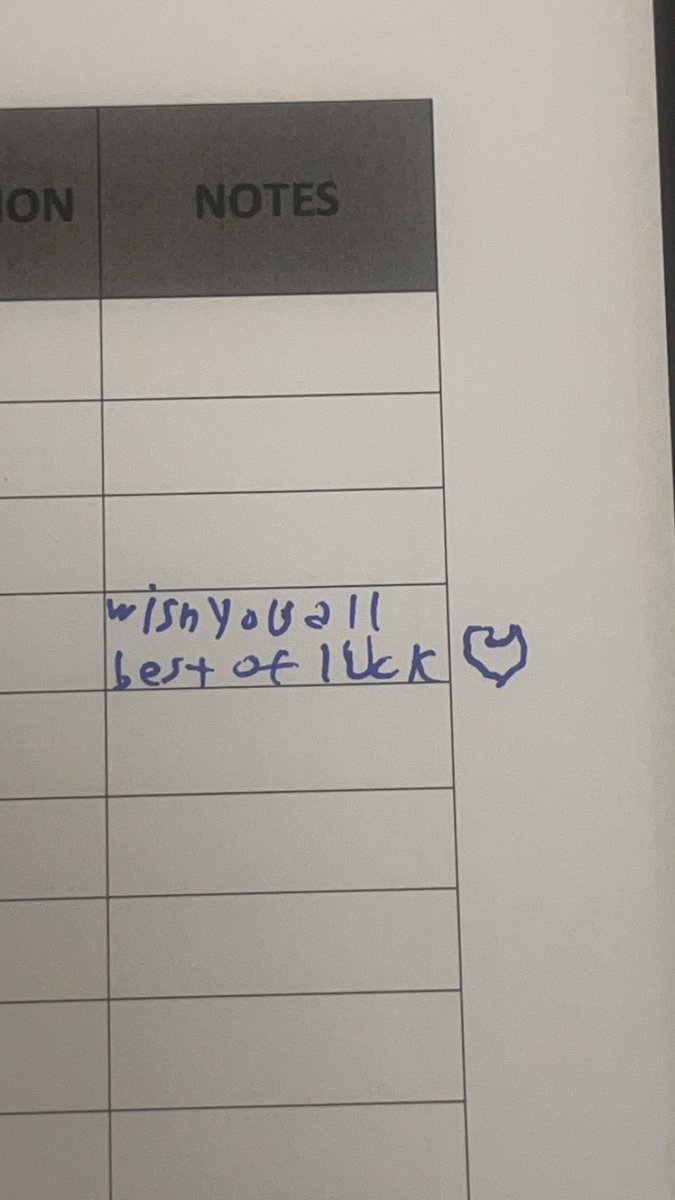 ION NOTES
wish you all
best of luck